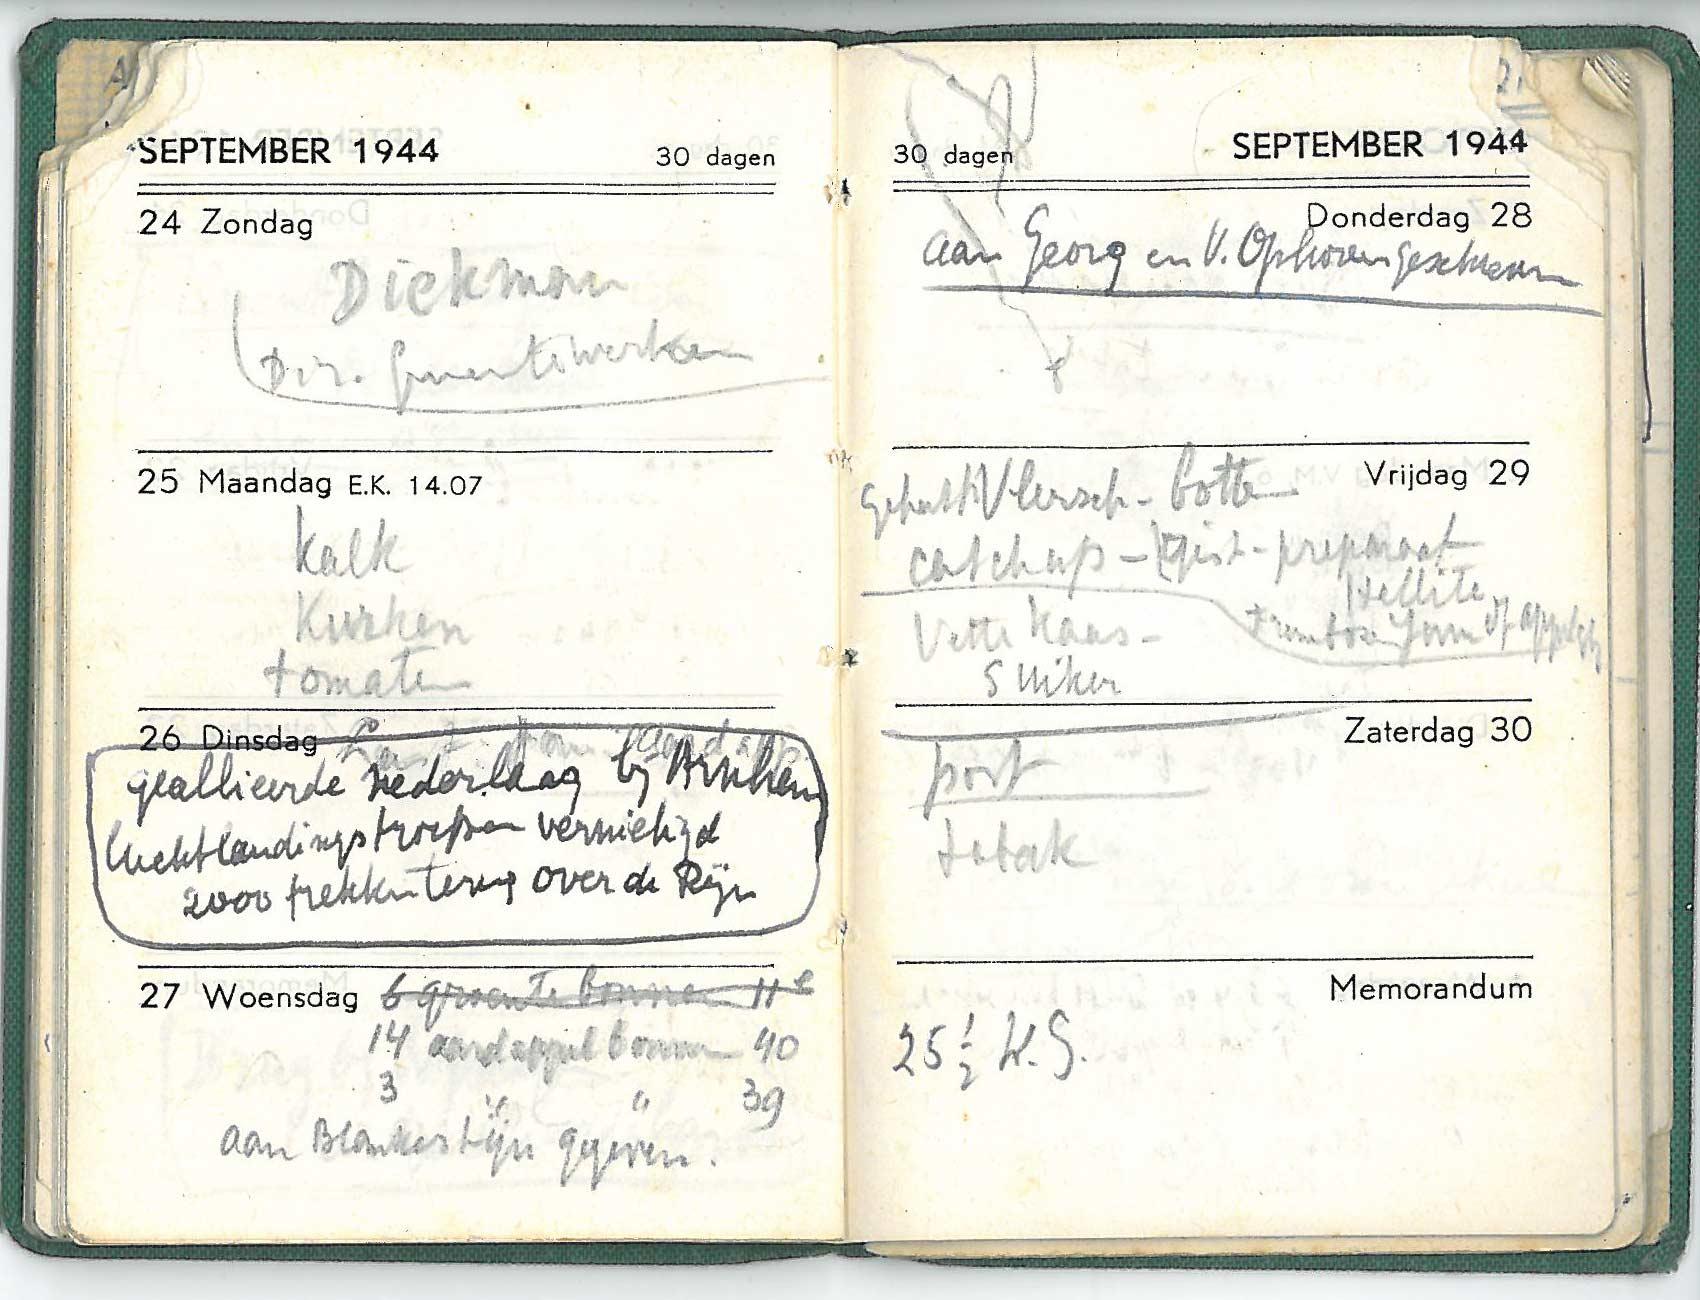 SEPTEMBER 1944 30 dagen
24 Zondag
Diekman
Dir. Gemeentewerken
25 Maandag E.K. 14.07
kalk
Kurken
tomaten
26 Dinsdag
geallieerde nederlaag bij Arnhem
luchtlandingstroepen vernietigd
2000 trekken terug over de Rijn
27 Woensdag 6 groente bonnen 11e
14 aardappel bonnen 40
3 " " 39
aan Blankestijn gegeven.
30 dagen SEPTEMBER 1944
Donderdag 28
aan Georg en V. Ophoven geschreven
Vrijdag 29
Vleersch - botten
catchup - gist - preparaat
Vette Kaas -
Suiker
Zaterdag 30
port
tabak
Memorandum
25 1/2 K.G.